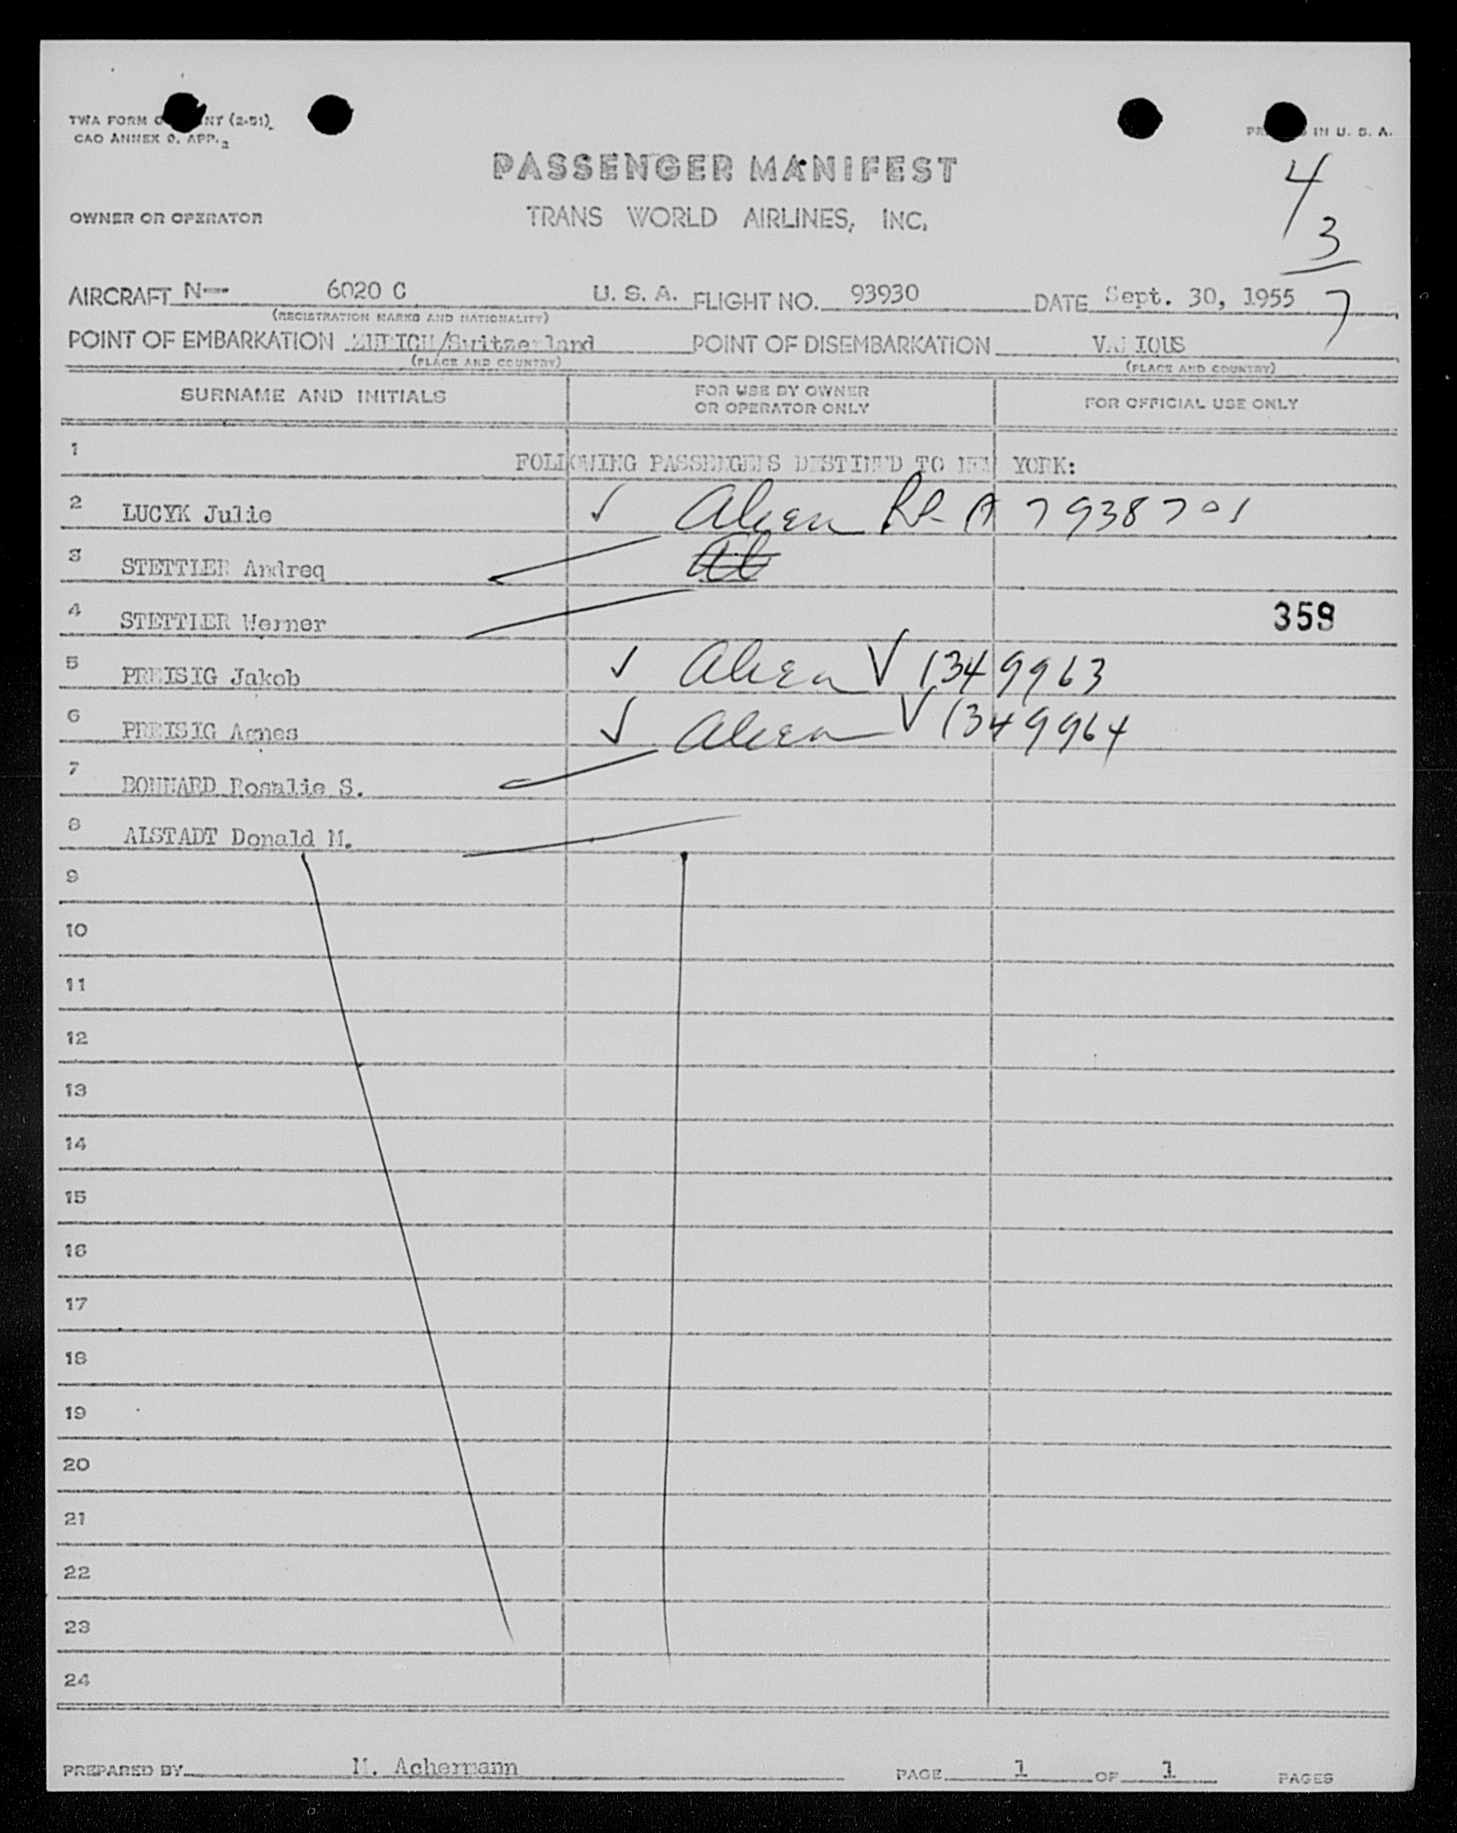 TWA FORM (2-51)
CAO ANNEX 9, APP. 2
IN U. S. A.
PASSENGER MANIFEST
4
OWNER OR OPERATOR TRANS WORLD AIRLINES, INC.
3
AIRCRAFT N— 6020 C U. S. A. FLIGHT NO. 93930 DATE Sept. 30, 1955
7
(REGISTRATION MARKS AND NATIONALITY)
POINT OF EMBARKATION ZURICH/Switzerland POINT OF DISEMBARKATION VARIOUS
(PLACE AND COUNTRY) (PLACE AND COUNTRY)
SURNAME AND INITIALS FOR USE BY OWNER OR OPERATOR ONLY FOR OFFICIAL USE ONLY
1 FOLLOWING PASSENGERS DESTINED TO NEW YORK:
2 LUCYK Julie ✓ Alien RP- A 7938701
3 STETTLER Andreq Al
4 STETTLER Werner 358
5 PREISIG Jakob ✓ Alien V 1349963
6 PREISIG Agnes ✓ Alien V 1349964
7 BONNARD Rosalie S.
8 ALSTADT Donald M.
9
10
11
12
13
14
15
16
17
18
19
20
21
22
23
24
PREPARED BY M. Achermann PAGE 1 OF 1 PAGES